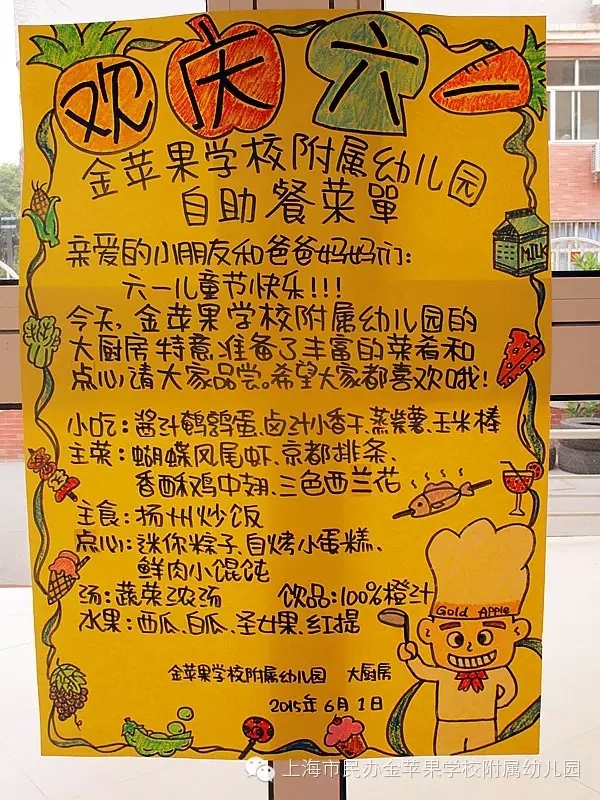 欢庆六一
金苹果学校附属幼儿园
自助餐菜單
亲爱的小朋友和爸爸妈妈们:
六一儿童节快乐!!!
今天,金苹果学校附属幼儿园的
大厨房特意准备了丰富的菜肴和
点心,请大家品尝。希望大家都喜欢哦!
小吃:酱汁鹌鹑蛋、卤汁小香干、蒸紫薯、玉米棒
主菜:蝴蝶凤尾虾、京都排条、
香酥鸡中翅、三色西兰花
主食:扬州炒饭
点心:迷你粽子、自烤小蛋糕、
鲜肉小馄饨
汤:蔬菜浓汤 饮品:100%橙汁
水果:西瓜、白瓜、圣女果、红提
金苹果学校附属幼儿园 大厨房
2015年6月1日
MILK
Gold Apple
上海市民办金苹果学校附属幼儿园